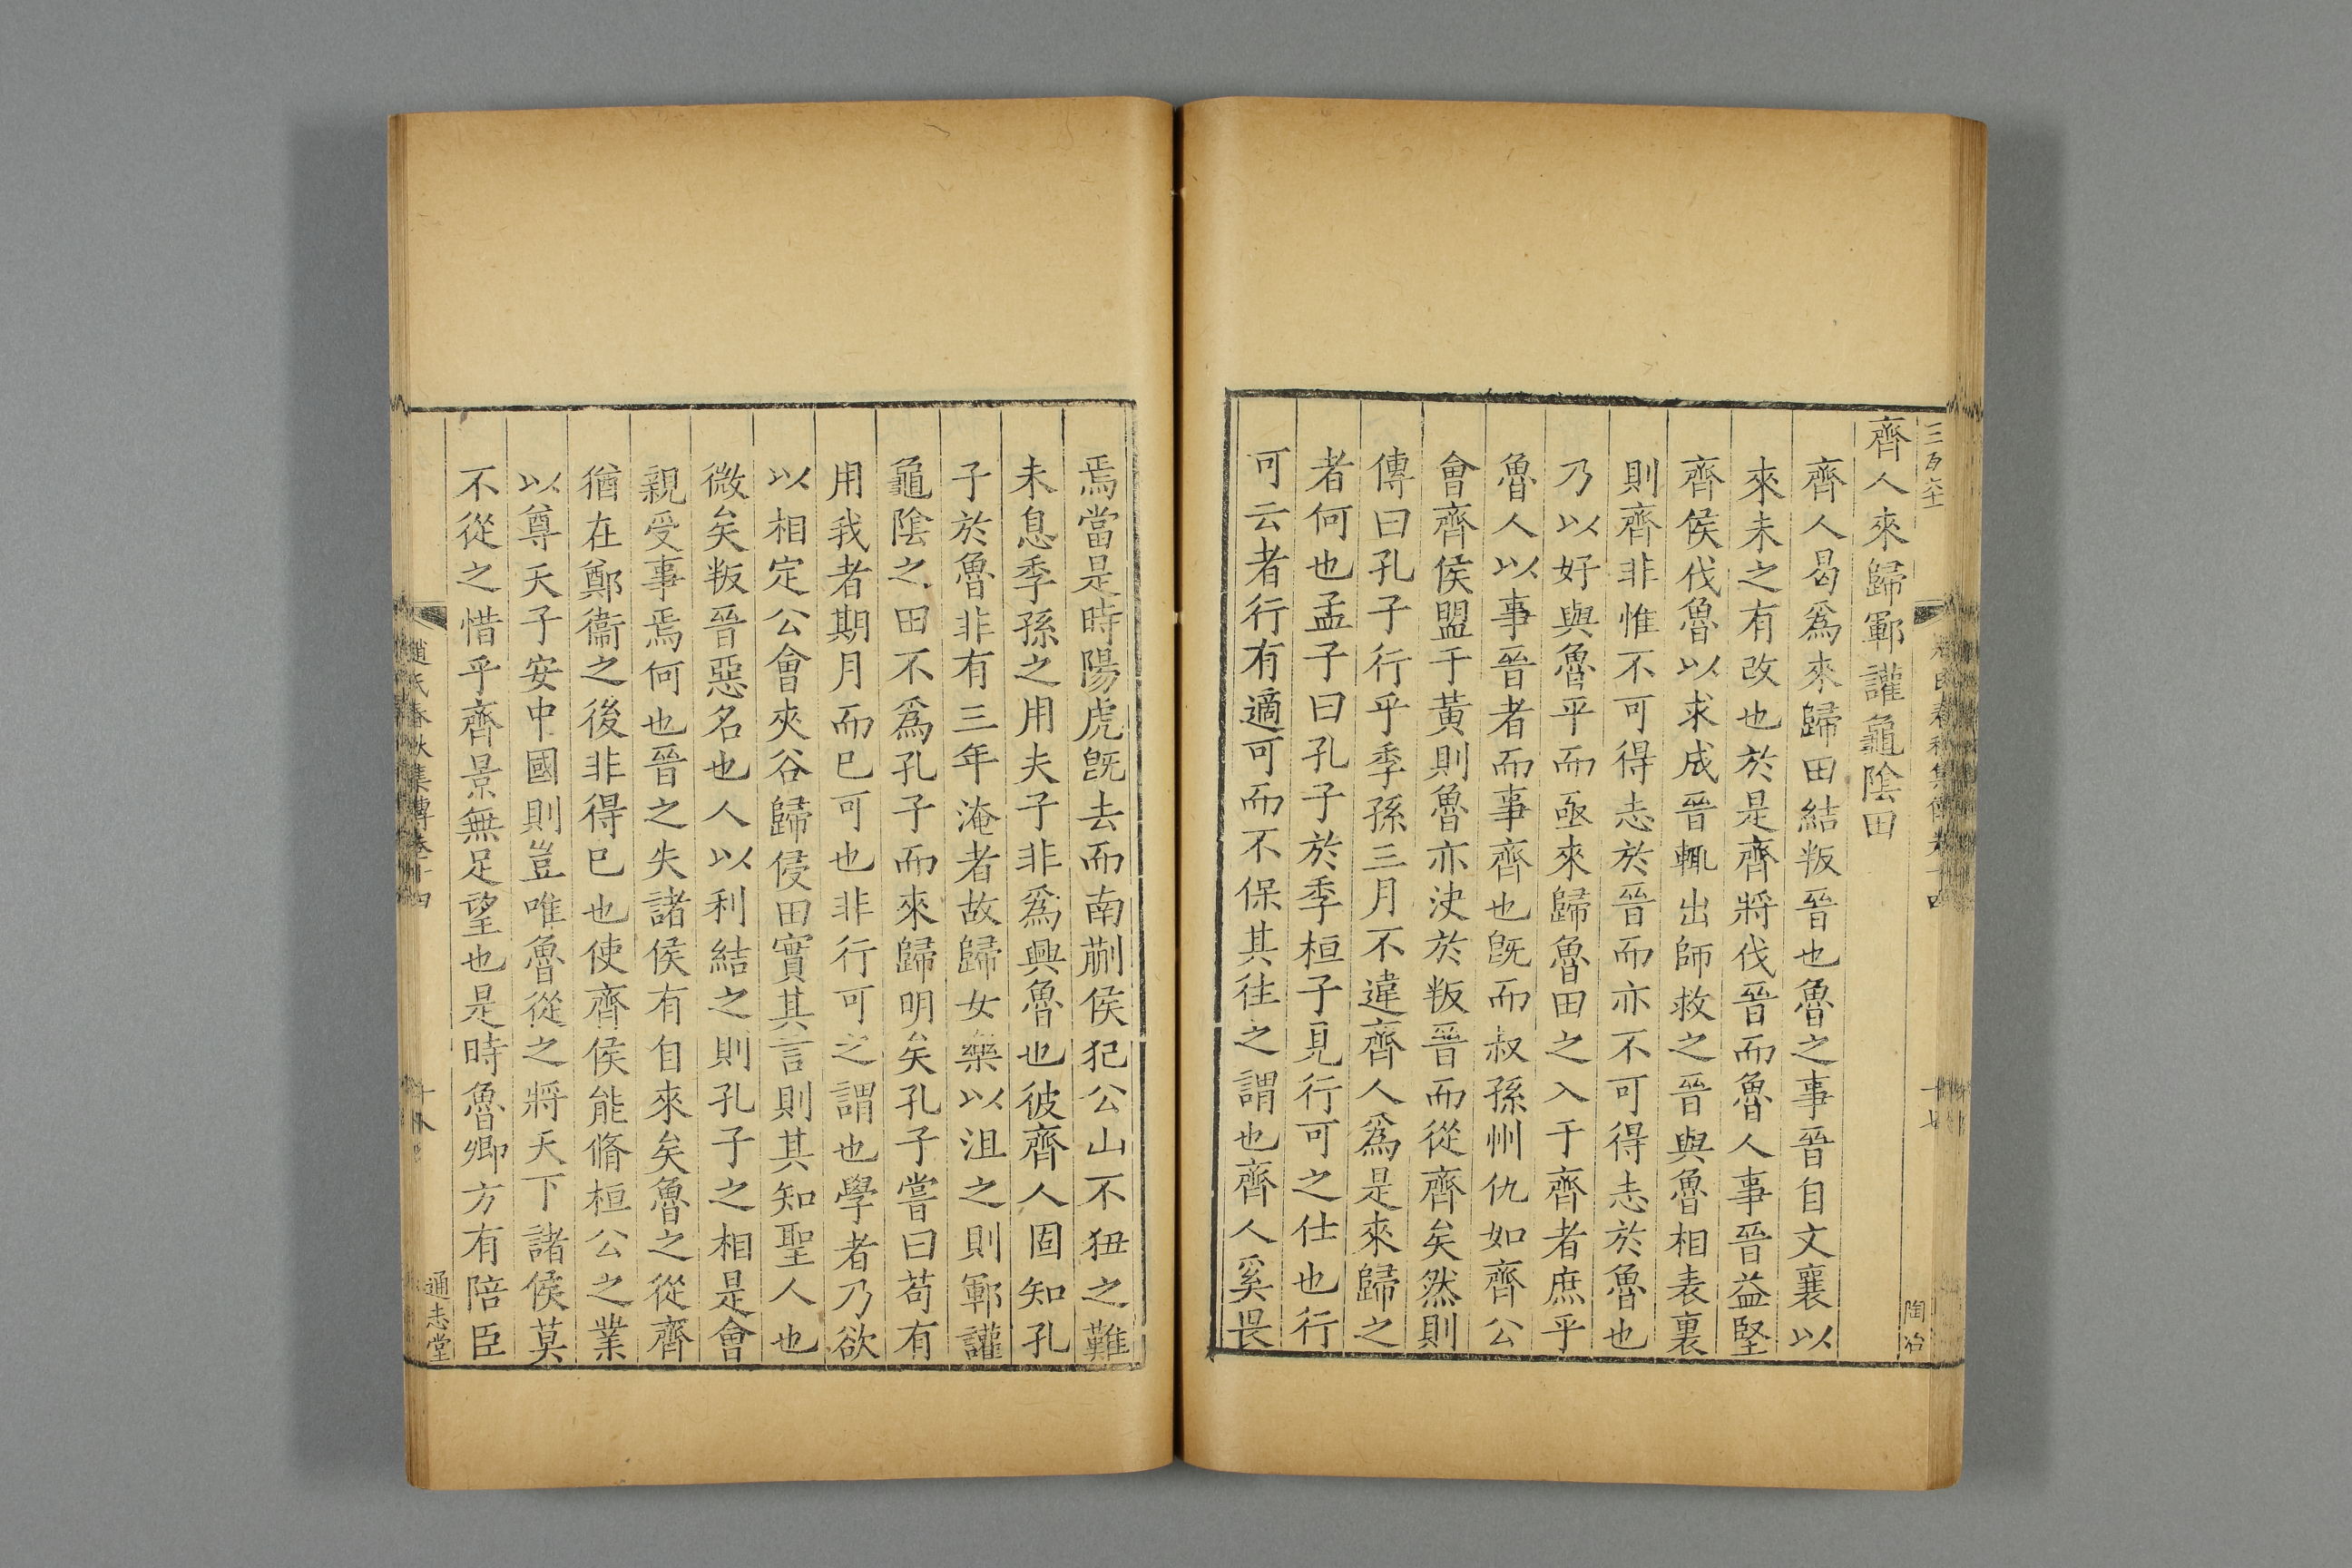 齊人來歸鄆讙龜陰田
齊人曷爲來歸田結叛晉也魯之事晉自文襄以
來未之有改也於是齊將伐晉而魯人事晉益堅
齊侯伐魯以求成晉輒出師救之晉與魯相表裏
則齊非惟不可得志於晉而亦不可得志於魯也
乃以好與魯平而亟來歸魯田之入于齊者庶乎
魯人以事晉者而事齊也旣而叔孫州仇如齊公
會齊侯盟于黃則魯亦決於叛晉而從齊矣然則
傳曰孔子行乎季孫三月不違齊人爲是來歸之
者何也孟子曰孔子於季桓子見行可之仕也行
可云者行有適可而不保其往之謂也齊人奚畏
陶冶
焉當是時陽虎旣去而南蒯侯犯公山不狃之難
未息季孫之用夫子非爲興魯也彼齊人固知孔
子於魯非有三年淹者故歸女樂以沮之則鄆讙
龜陰之田不爲孔子而來歸明矣孔子嘗曰苟有
用我者期月而已可也非行可之謂也學者乃欲
以相定公會夾谷歸侵田實其言則其知聖人也
微矣叛晉惡名也人以利結之則孔子之相是會
親受事焉何也晉之失諸侯有自來矣魯之從齊
猶在鄭衞之後非得已也使齊侯能脩桓公之業
以尊天子安中國則豈唯魯從之將天下諸侯莫
不從之惜乎齊景無足望也是時魯卿方有陪臣
趙氏春秋集傳卷十四
十八
通志堂